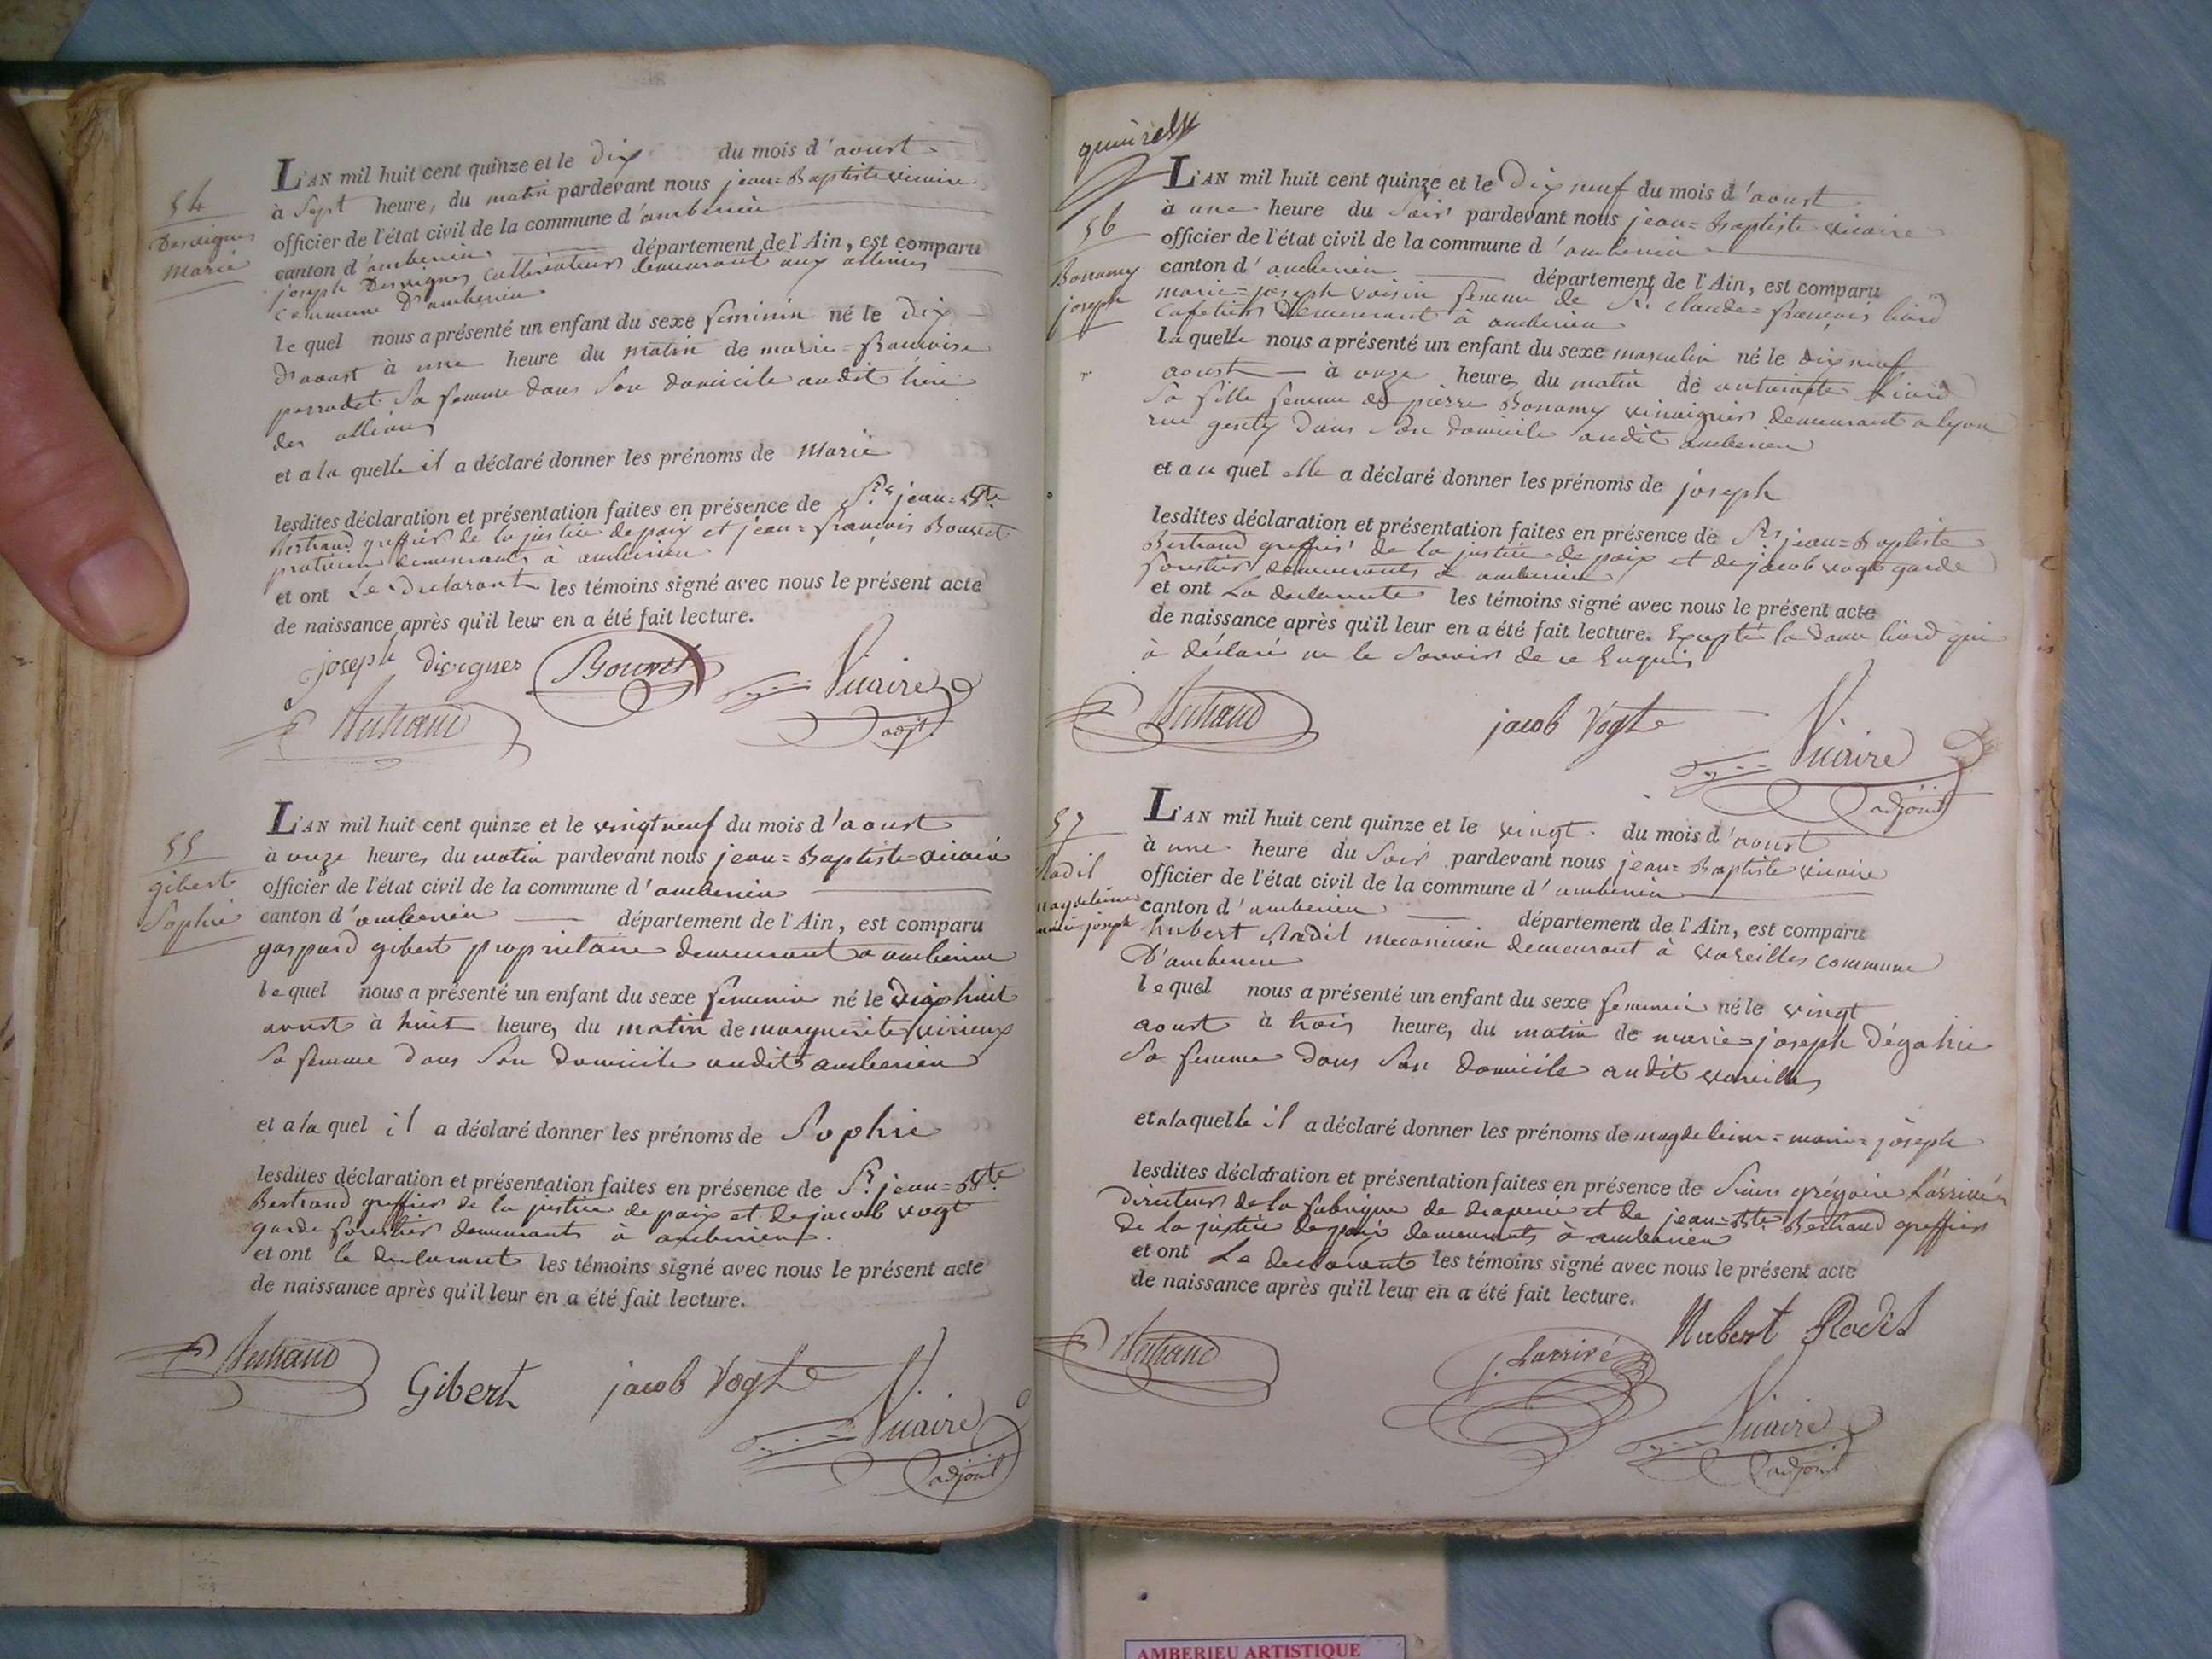 54
Desvignes
Marie
L'AN mil huit cent quinze et le dix du mois d'aoust
à Sept heure, du matin pardevant nous jean=Baptiste vicaire
officier de l'état civil de la commune d'amberieu
canton d'amberieu département de l'Ain, est comparu
joseph Desvignes Cultivateur demeurant aux allimes
Commune D'amberieu
le quel nous a présenté un enfant du sexe feminin né le dix
D'aoust à une heure du matin de marie=francoise
perrodet Sa femme dans Son domicile audit lieu
des allimes
et a la quelle il a déclaré donner les prénoms de Marie
lesdites déclaration et présentation faites en présence de Srs jean=Bte
Bertrand greffier de la justice de paix et jean=françois Bouvet
praticien demeurants à amberieu
et ont Le Déclarant les témoins signé avec nous le présent acte
de naissance après qu'il leur en a été fait lecture.
joseph divignes Bouvet Vicaire
Bertrand adjt
55
gibert
Sophie
L'AN mil huit cent quinze et le vingt neuf du mois d'aoust
à onze heures du matin pardevant nous jean=Baptiste vicaire
officier de l'état civil de la commune d'amberieu
canton d'amberieu département de l'Ain, est comparu
gaspard gibert proprietaire demeurant a amberieu
le quel nous a présenté un enfant du sexe feminin né le dix huit
aoust à huit heure, du matin de marguerite virieux
Sa femme dans Son domicile audit amberieu
et a la quel il a déclaré donner les prénoms de Sophie
lesdites déclaration et présentation faites en présence de Sr. jean=Bte
Bertrand greffier de la justice de paix et de jacob vogt
garde forestier demeurants à amberieu.
et ont le declarant les témoins signé avec nous le présent acte
de naissance après qu'il leur en a été fait lecture.
Bertrand Gibert jacob Vogt Vicaire
adjoint
56
Bonamy
joseph
L'AN mil huit cent quinze et le Dix neuf du mois d'aoust
à une heure du Soir pardevant nous jean=Baptiste vicaire
officier de l'état civil de la commune d'amberieu
canton d'amberieu département de l'Ain, est comparu
marie=joseph voisin femme de Sr. Claude=françois liard
Cafetier Demeurant à amberieu
laquelle nous a présenté un enfant du sexe masculin né le dix neuf
aoust à onze heures du matin de antoinette liard
Sa fille femme de pierre Bonamy vinaigrier demeurant a lyon
rue genty dans Son domicile audit amberieu
et au quel elle a déclaré donner les prénoms de joseph
lesdites déclaration et présentation faites en présence de Srs jean=Baptiste
Bertrand greffier de la justice de paix et de jacob vogt garde
forestier demeurants à amberieu
et ont La declarante les témoins signé avec nous le présent acte
de naissance après qu'il leur en a été fait lecture. Excepté la dame liard qui
à déclaré ne le Savoir de ce Enquis
Bertrand jacob Vogt Vicaire
adjoint
57
Radil
magdeleine
marie joseph
L'AN mil huit cent quinze et le vingt du mois d'aoust
à une heure du Soir pardevant nous jean=Baptiste vicaire
officier de l'état civil de la commune d'amberieu
canton d'amberieu département de l'Ain, est comparu
hubert Radil mecanicien demeurant à vareilles commune
D'amberieu
lequel nous a présenté un enfant du sexe feminin né le vingt
aoust à trois heure, du matin de marie=joseph Dégahie
Sa femme dans Son domicile audit vareilles
et a la quelle il a déclaré donner les prénoms de magdeleine=marie=joseph
lesdites déclaration et présentation faites en présence de Sieurs grégoire Larrivé
Directeur de la fabrique de draperie et de jean=Bte Bertrand greffier
de la justice de paix demeurants à amberieu
et ont Le declarant les témoins signé avec nous le présent acte
de naissance après qu'il leur en a été fait lecture.
Hubert Radil
Bertrand Larrivé
Vicaire
adjoint
AMBERIEU ARTISTIQUE